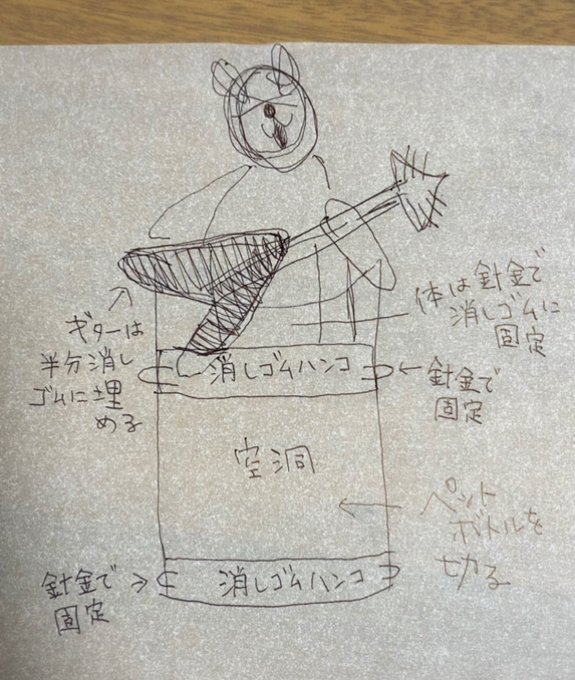 ギターは
半分消し
ゴムに埋
める
体は針金で
消しゴムに
固定
消しゴムハンコ
針金で
固定
空洞
ペット
ボトルを
切る
針金で
固定
消しゴムハンコ